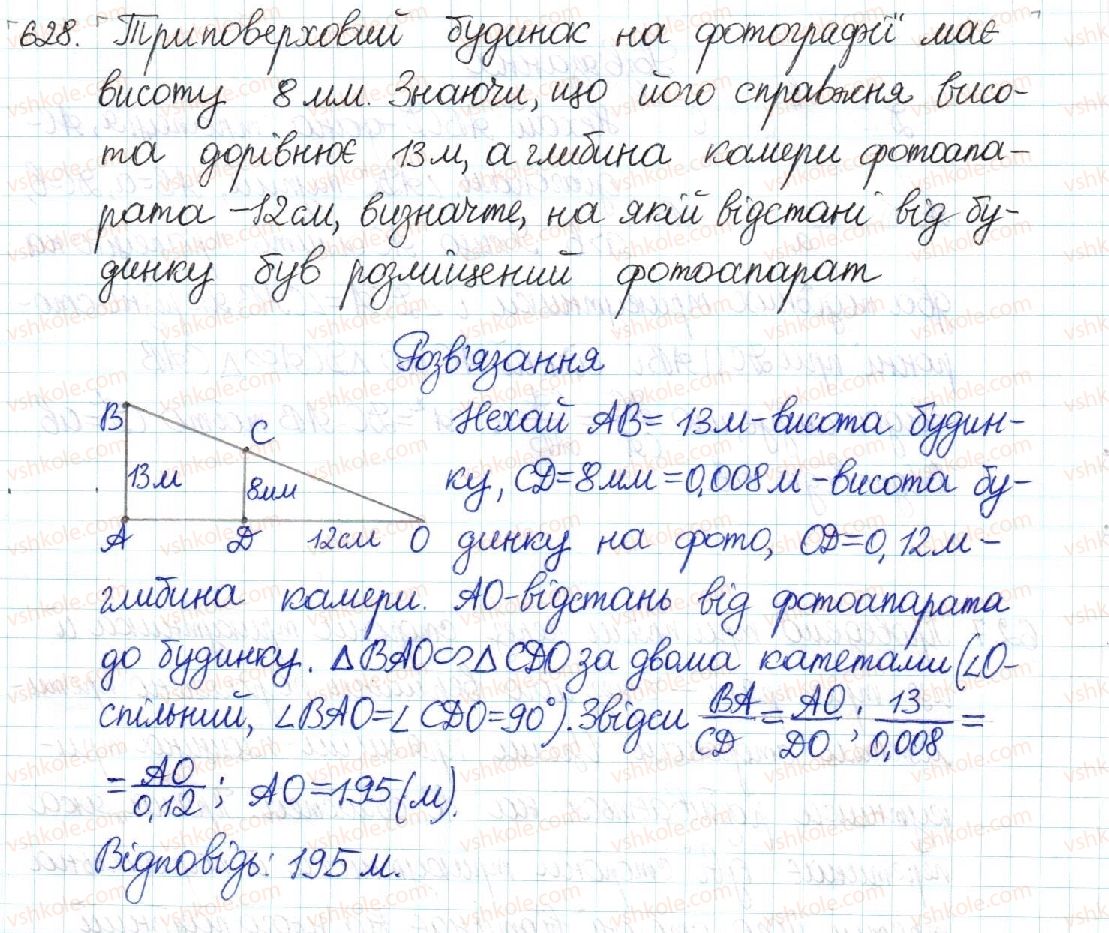 628. Триповерховий будинок на фотографії має
висоту 8 мм. Знаючи, що його справжня висо-
та дорівнює 13 м, а глибина камери фотоапа-
рата - 12 см, визначте, на якій відстані від бу-
динку був розміщений фотоапарат
Розв'язання
B
C
13 м
8 мм
A
D
12 см
O
Нехай AB = 13 м - висота будин-
ку, CD = 8 мм = 0,008 м - висота бу-
динку на фото, OD = 0,12 м -
глибина камери. AO - відстань від фотоапарата
до будинку. △BAO ∽ △CDO за двома катетами (∠O-
спільний, ∠BAO = ∠CDO = 90°). Звідси BA/CD = AO/DO; 13/0,008 =
= AO/0,12; AO = 195 (м).
Відповідь: 195 м.